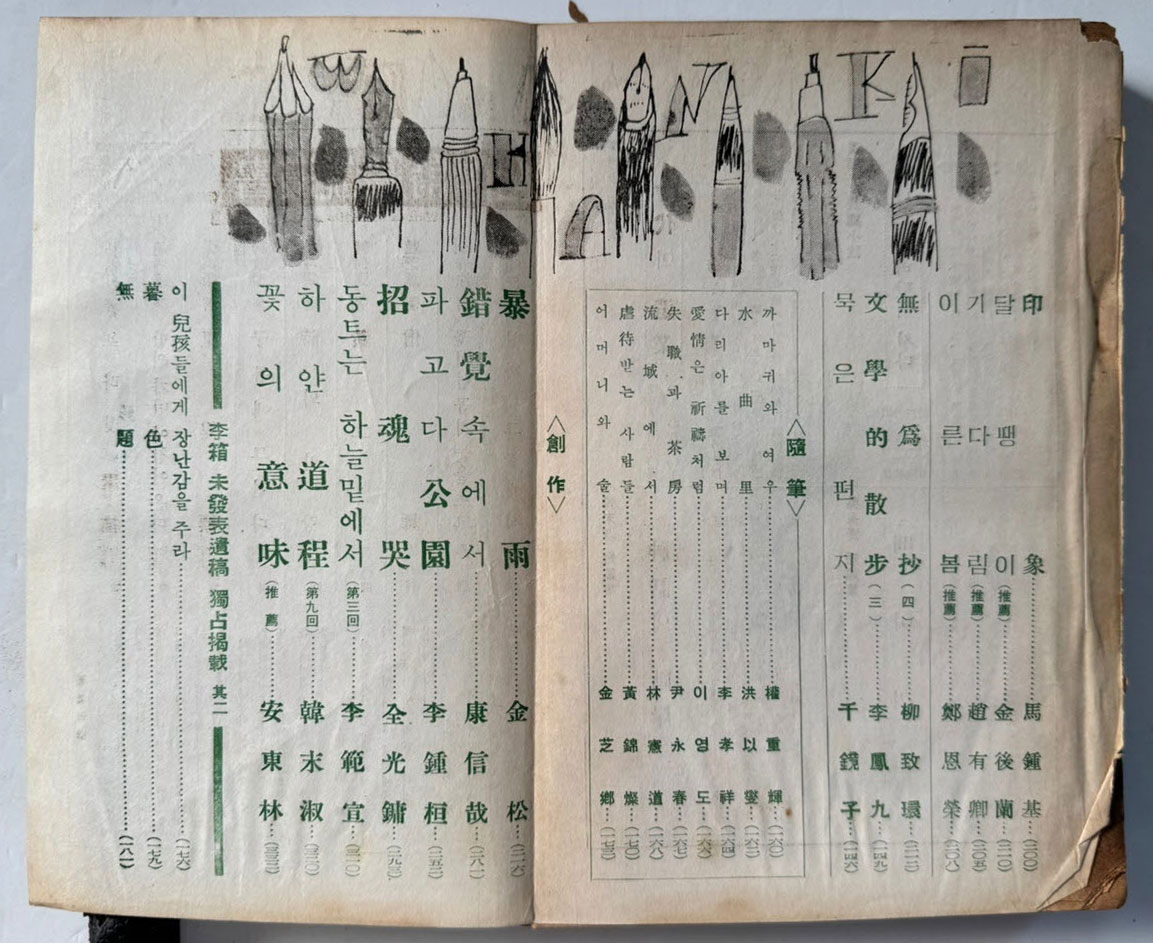 印象 馬鍾基 (二〇〇)
달맹이 (推薦) 金後蘭 (二一〇)
기다림 (推薦) 趙有卿 (二〇五)
이른봄 (推薦) 鄭恩榮 (二〇八)
無爲抄 (四) 柳致環
文學的散步 (三) 李鳳九
묵은편지 千鏡子
<隨筆>
까마귀와 여우 權重輝 (一六〇)
水曲里 洪以燮 (一六二)
다리아를 보며 李孝祥 (一六四)
愛情은 祈禱처럼 이영도 (一六六)
失職과 茶房 尹永春 (一六七)
流域에서 林憲道 (一六八)
虐待받는 사람들 黃錦燦 (一七〇)
어머니와 술 金芝鄕 (一七二)
<創作>
暴雨 金松 (二一六)
錯覺속에서 康信哉 (二八一)
파고다公園 李鍾桓
招魂哭 全光鏞
동트는 하늘밑에서 (第三回) 李範宣
하얀 道程 (第九回) 韓末淑
꽃의 意味 (推薦) 安東林
李箱 未發表遺稿 獨占揭載 其二
이 兒孩들에게 장난감을 주라 (一七六)
暮色 (一七九)
無題 (一八一)